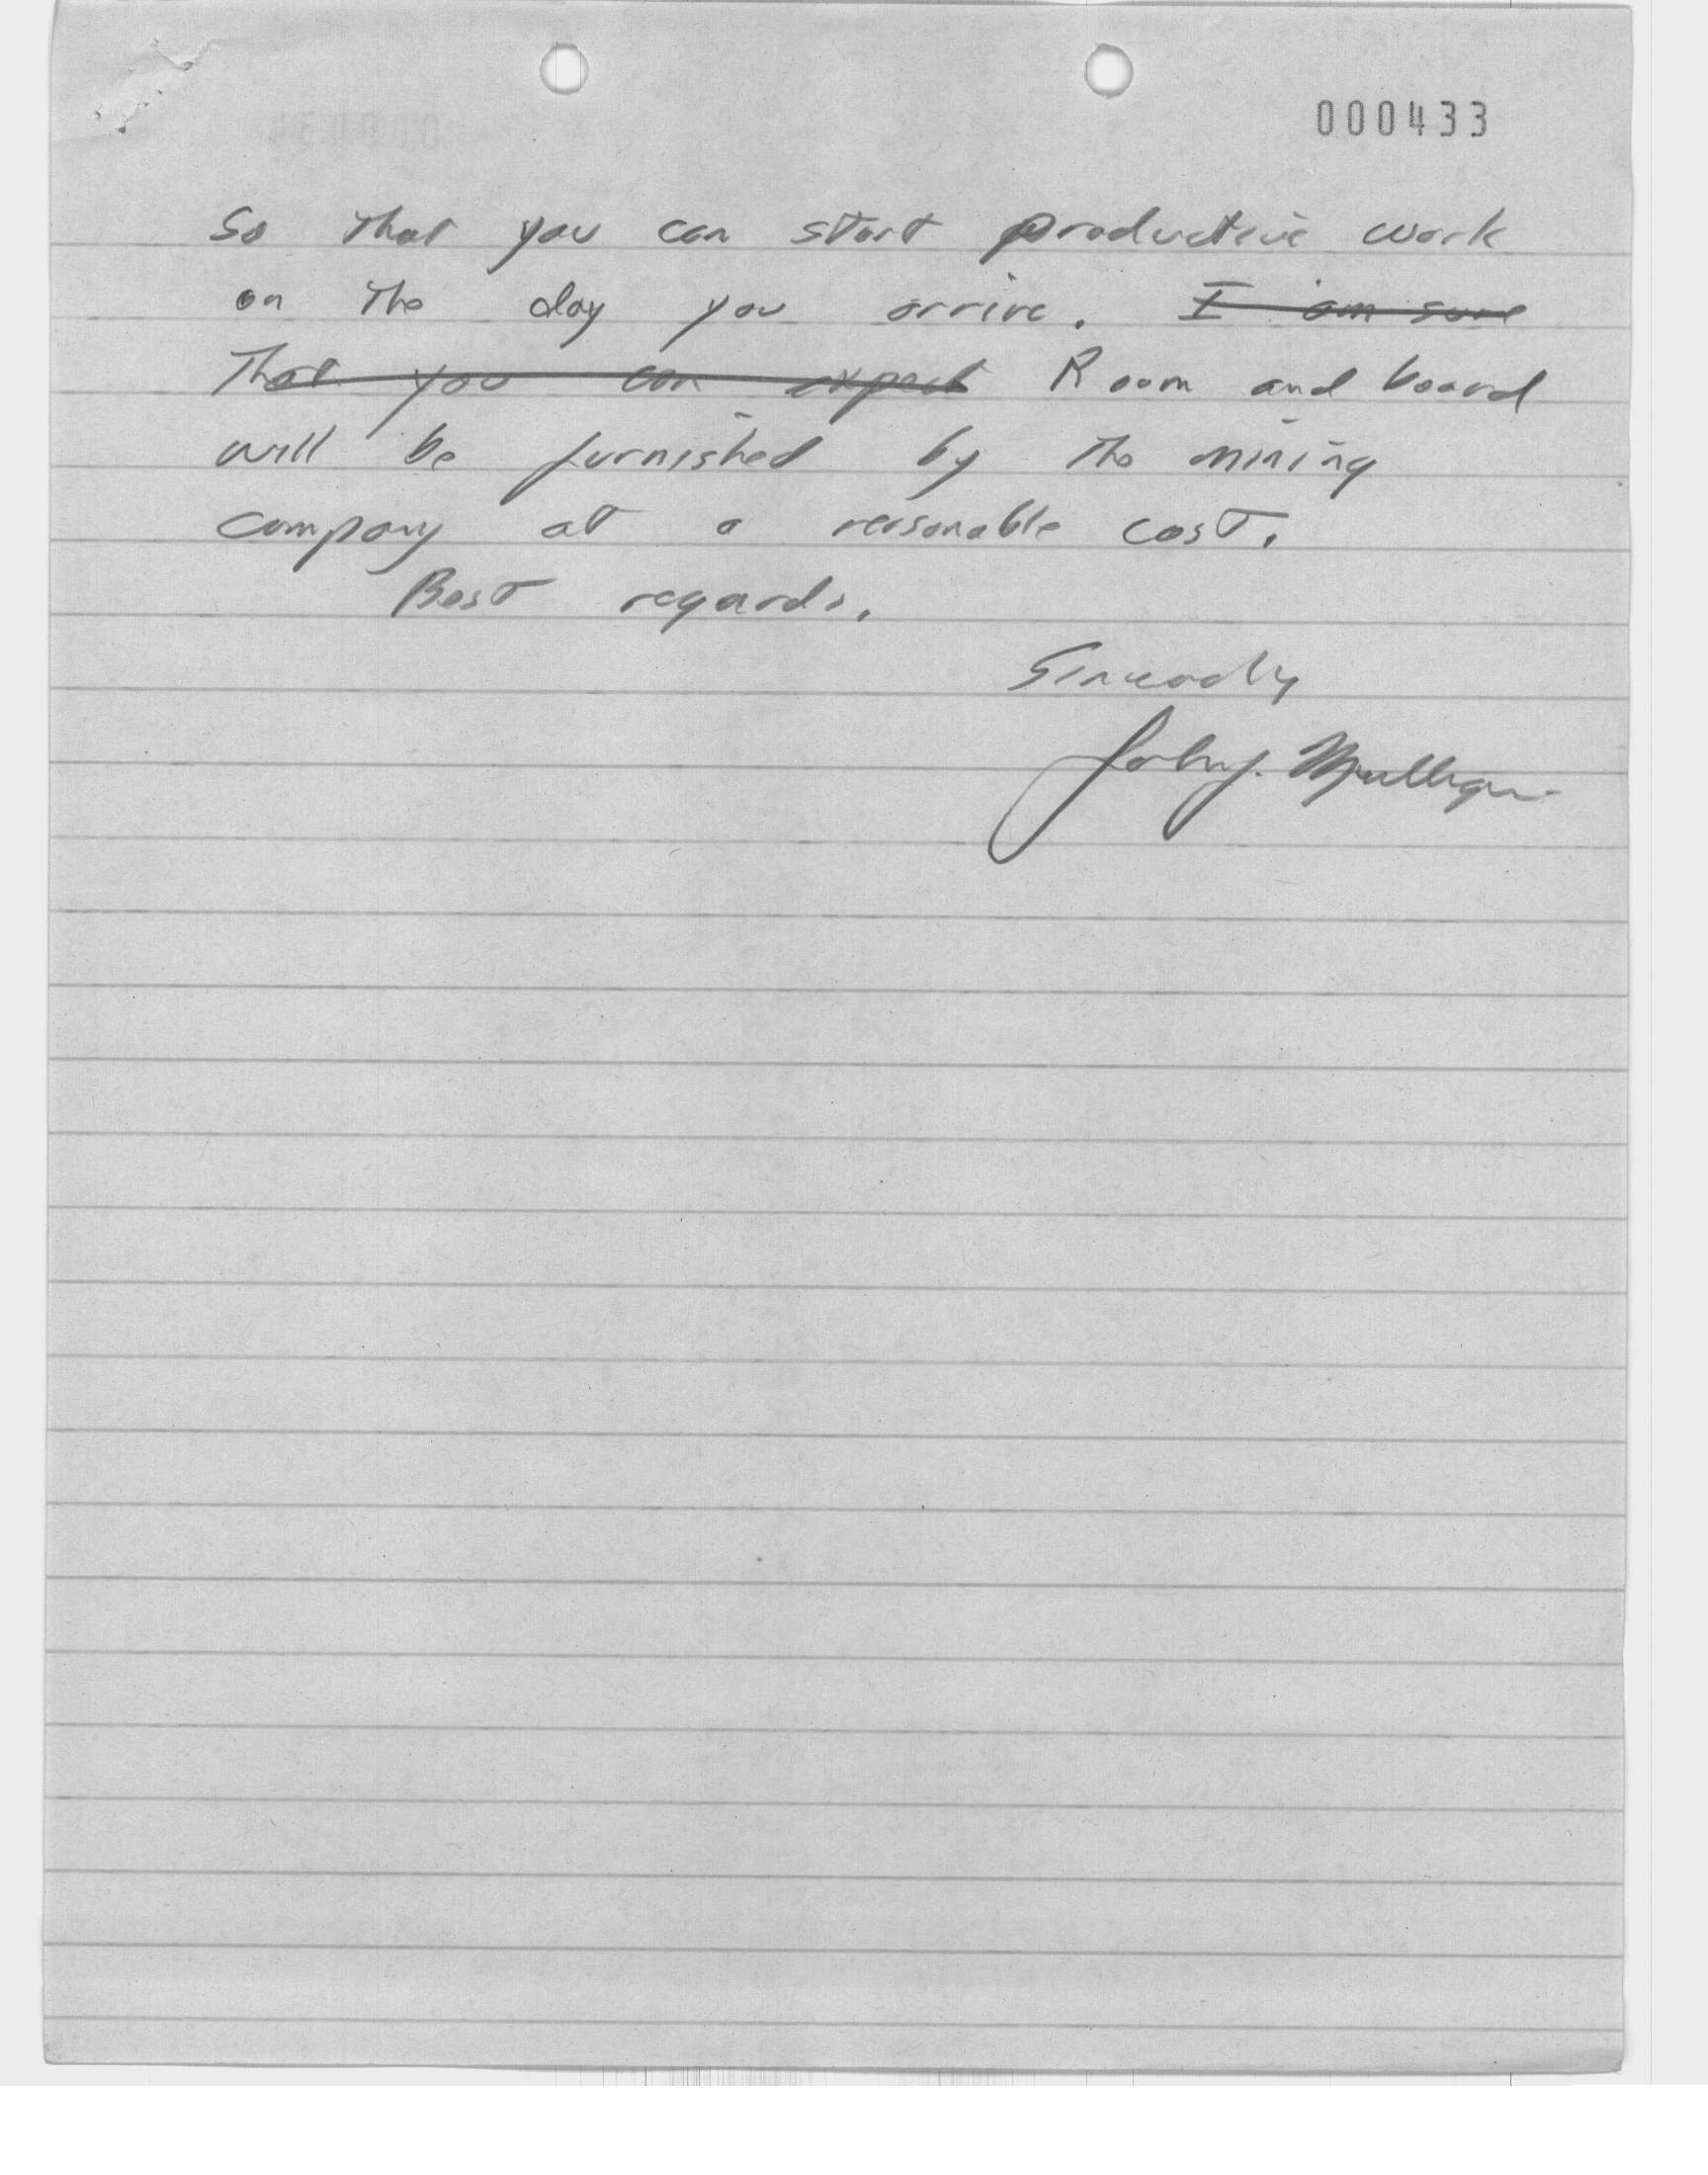 000433
So that you can start productive work
on the day you arrive. I am sure
That you can expect Room and board
will be furnished by the mining
company at a reasonable cost.
Best regards.
Sincerely
John J. Mulligan